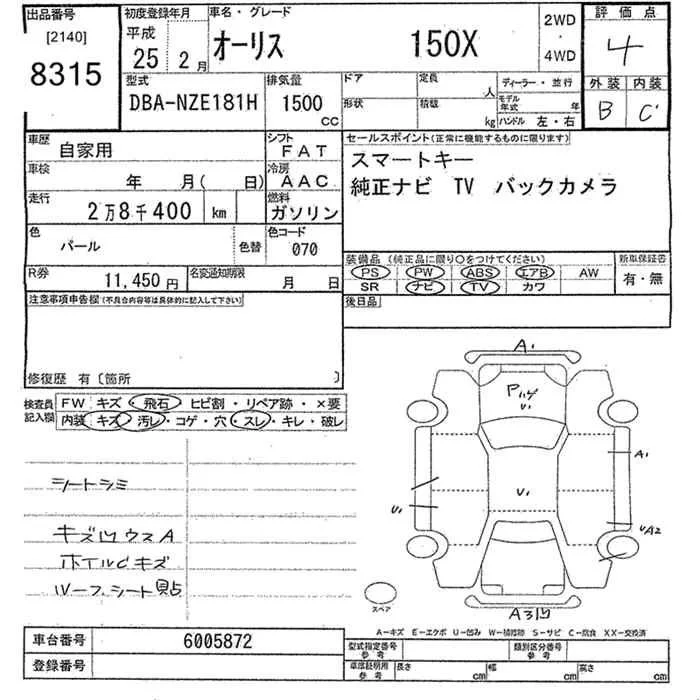 出品番号
[2140]
8315
初度登録年月
平成
25 2月
車名・グレード
オーリス 150X
2WD
・
4WD
評価点
4
外装 内装
B C'
型式
DBA-NZE181H
排気量
1500
CC
ドア
形状
定員
人
積載
kg
ディーラー・並行
モデル年式 年
ハンドル 左・右
車歴
自家用
シフト
FAT
車検
年 月( 日)
冷房
AAC
走行
2万8千400 km
燃料
ガソリン
色
パール
色替
色コード
070
R券
11,450円
名変通知期限
月 日
セールスポイント(正常に機能するものに限ります)
スマートキー
純正ナビ TV バックカメラ
装備品(純正品に限り○をつけてください)
PS PW ABS エアB AW
SR ナビ TV カワ
新車保証書
有・無
後日品
注意事項申告欄(不具合内容等は具体的に記入して下さい)
修復歴 有〔箇所 〕
検査員記入欄
FW キズ・飛石・ヒビ割・リペア跡・×要
内装 キズ・汚レ・コゲ・穴・スレ・キレ・破レ
シートシミ
キズ凹ウスA
ホイルCキズ
ルーフシート貼
A1
Pハゲ
U1
A1
U1
U1
UA2
A3凹
スペア
A-キズ E-エクボ U-凹み W-補修跡 S-サビ C-腐食 XX-交換済
車台番号 6005872
登録番号
型式指定番号
参考
類別区分番号
参考
車庫証明用
参考
長さ cm 幅 cm 高さ cm